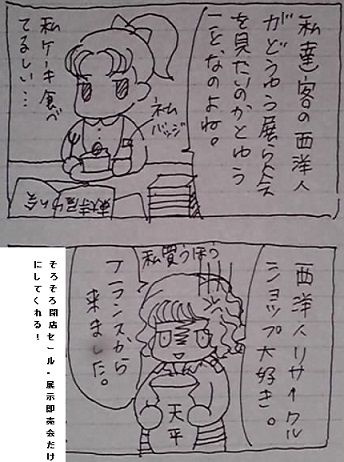 私達客の西洋人
がどうゆう展らん会
を見たいのかとゆう
ことなのよね。
私ケーキ食べ
てるしい…
ネム
バッジ
西洋人リサイクル
ショップ大好き。
私買うほう
フランスから
来ました。
天平
そろそろ閉店セール・展示即売会だけ
にしてくれる！